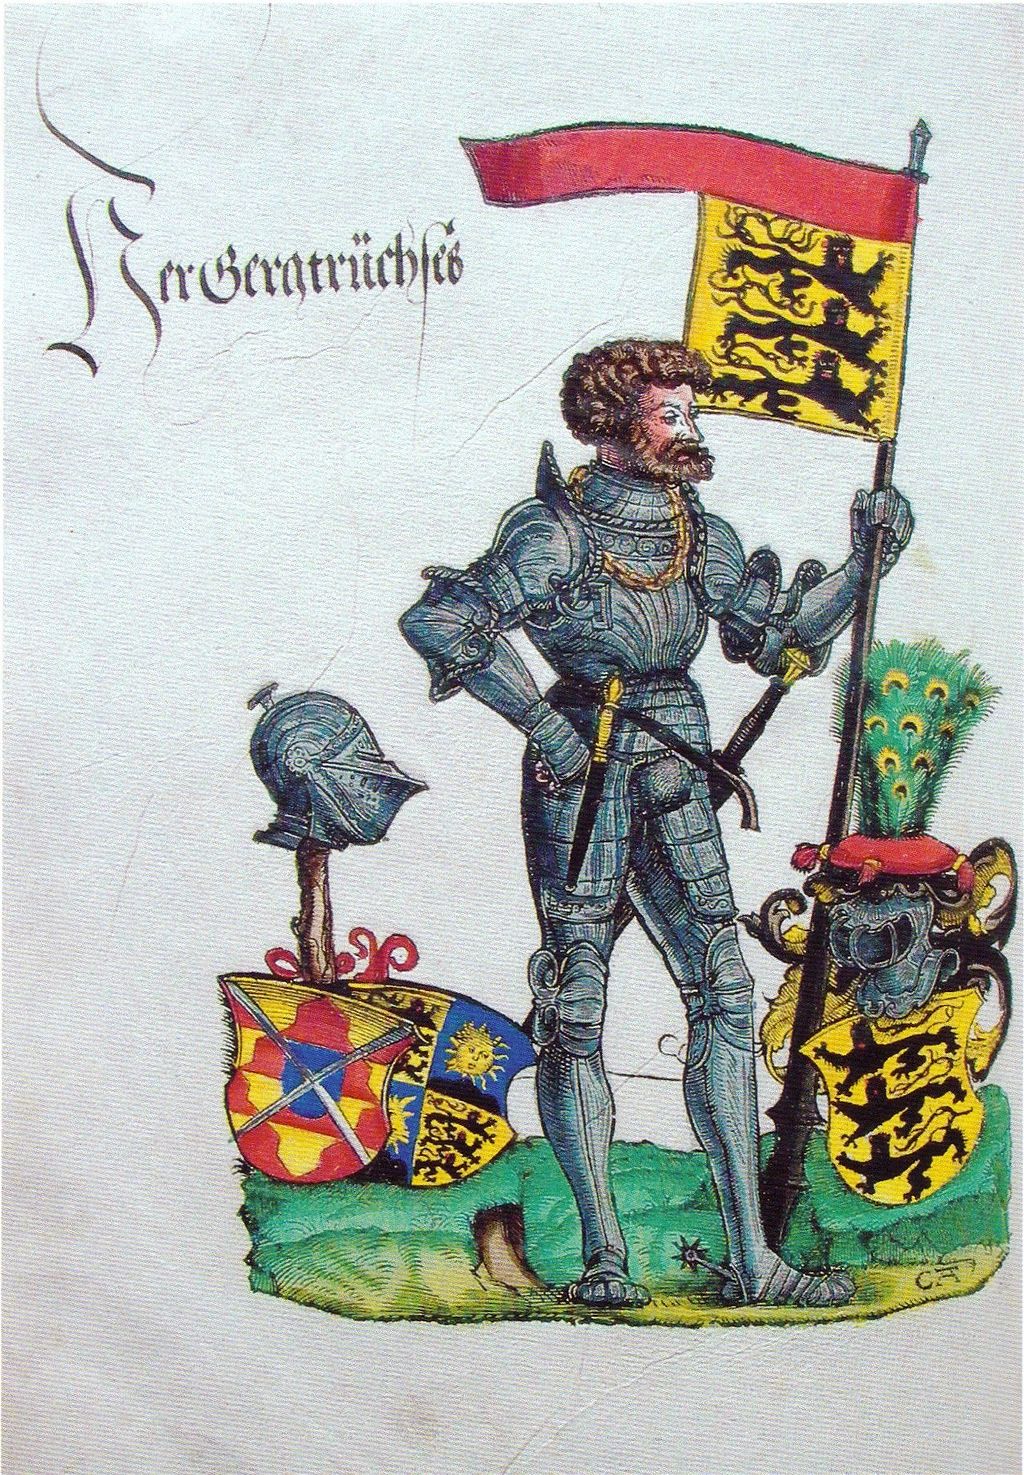 Her Gergtrüchses
CA